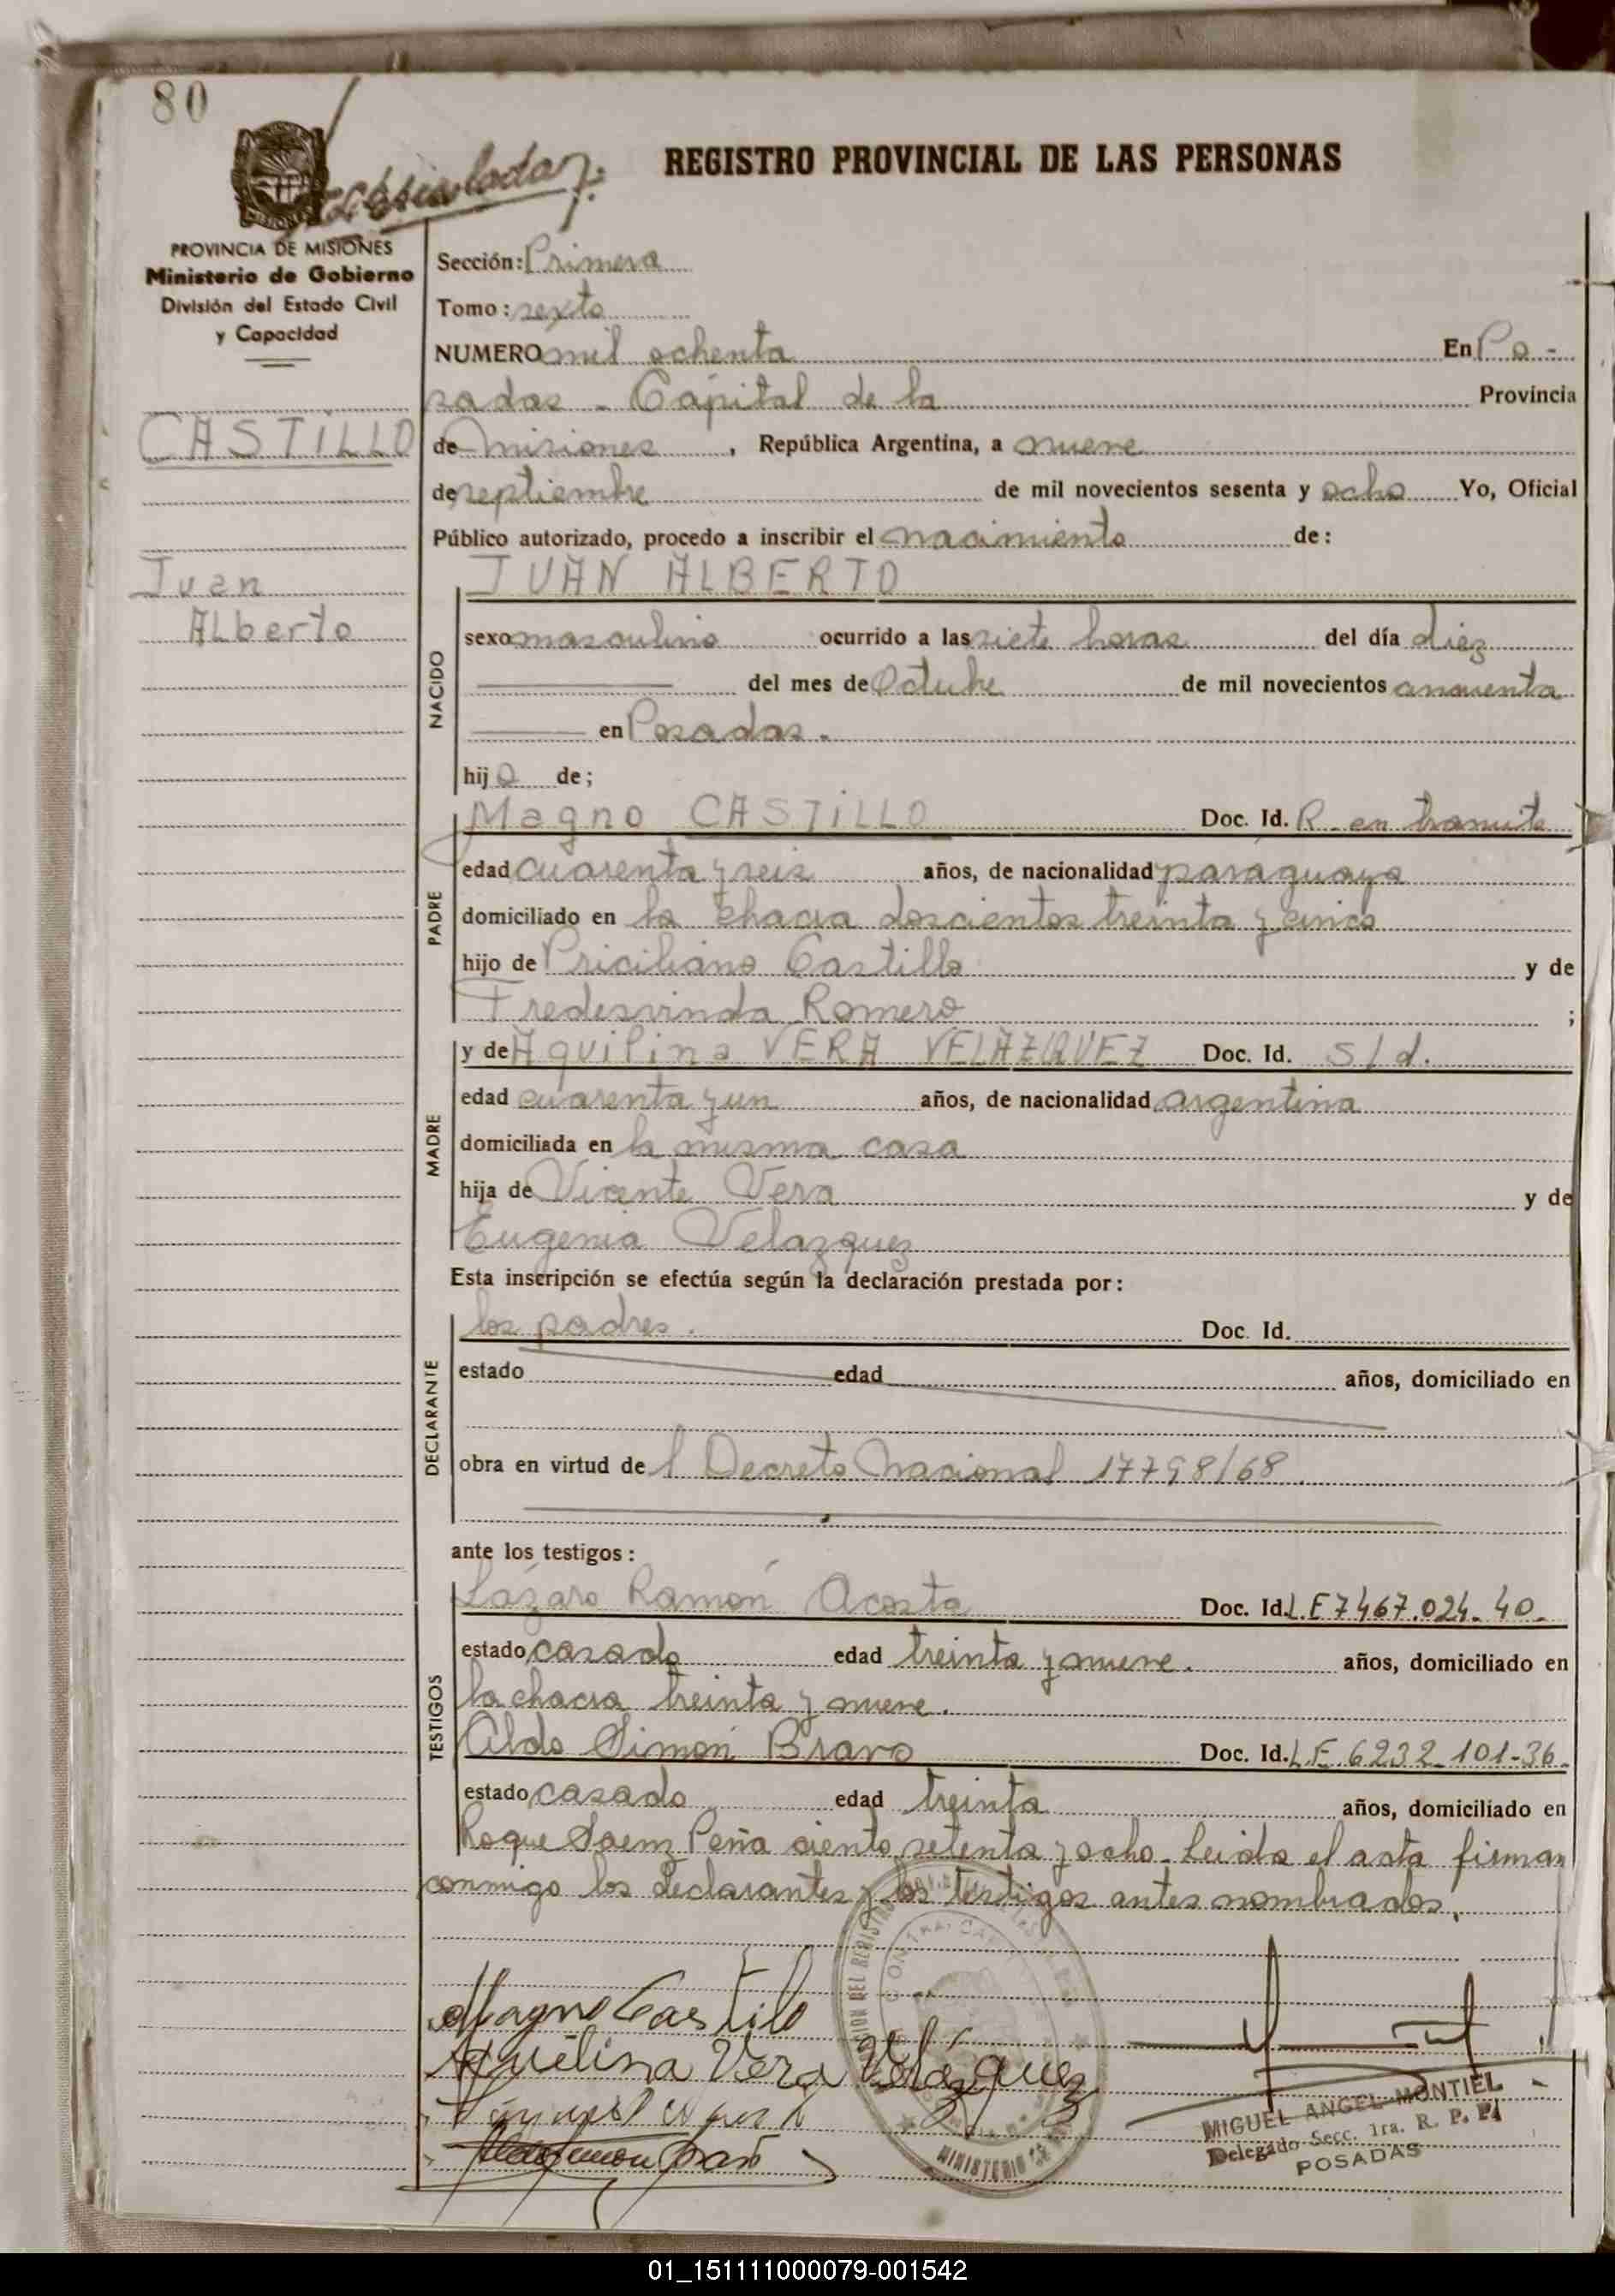 80
REGISTRO PROVINCIAL DE LAS PERSONAS
PROVINCIA DE MISIONES
Ministerio de Gobierno
División del Estado Civil
y Capacidad
CASTILLO
Juan
Alberto
Sección: Primera
Tomo: sexto
NUMERO mil ochenta En Po-
sadas - Capital de la Provincia
de Misiones, República Argentina, a nueve
de septiembre de mil novecientos sesenta y ocho Yo, Oficial
Público autorizado, procedo a inscribir el nacimiento de:
JUAN ALBERTO
NACIDO
sexo masculino ocurrido a las siete horas del día diez
del mes de Octubre de mil novecientos cincuenta
en Posadas.
hijo de;
PADRE
Magno CASTILLO Doc. Id. R. en tramite
edad cuarenta y seis años, de nacionalidad paraguaya
domiciliado en la chacra doscientos treinta y cinco
hijo de Priciliano Castillo y de
Fredesvinda Romero ;
MADRE
y de Aquilina VERA VELAZQUEZ Doc. Id. s/d.
edad cuarenta y un años, de nacionalidad argentina
domiciliada en la misma casa
hija de Vicente Vera y de
Eugenia Velazquez
Esta inscripción se efectúa según la declaración prestada por:
DECLARANTE
los padres. Doc. Id.
estado edad años, domiciliado en
obra en virtud del Decreto Nacional 17798/68.
ante los testigos:
TESTIGOS
Lázaro Ramón Acosta Doc. Id. L.E 7467.024-40-
estado casado edad treinta y nueve. años, domiciliado en
la chacra treinta y nueve.
Aldo Simón Bravo Doc. Id. L.E. 6232-101-36-
estado casado edad treinta años, domiciliado en
Roque Saenz Peña ciento setenta y ocho. Leida el acta firman
conmigo los declarantes y los testigos antes nombrados.
Magno Castillo
Aquilina Vera Velázquez
MIGUEL ANGEL MONTIEL
Delegado Secc. 1ra. R. P. P.
POSADAS
01_151111000079-001542